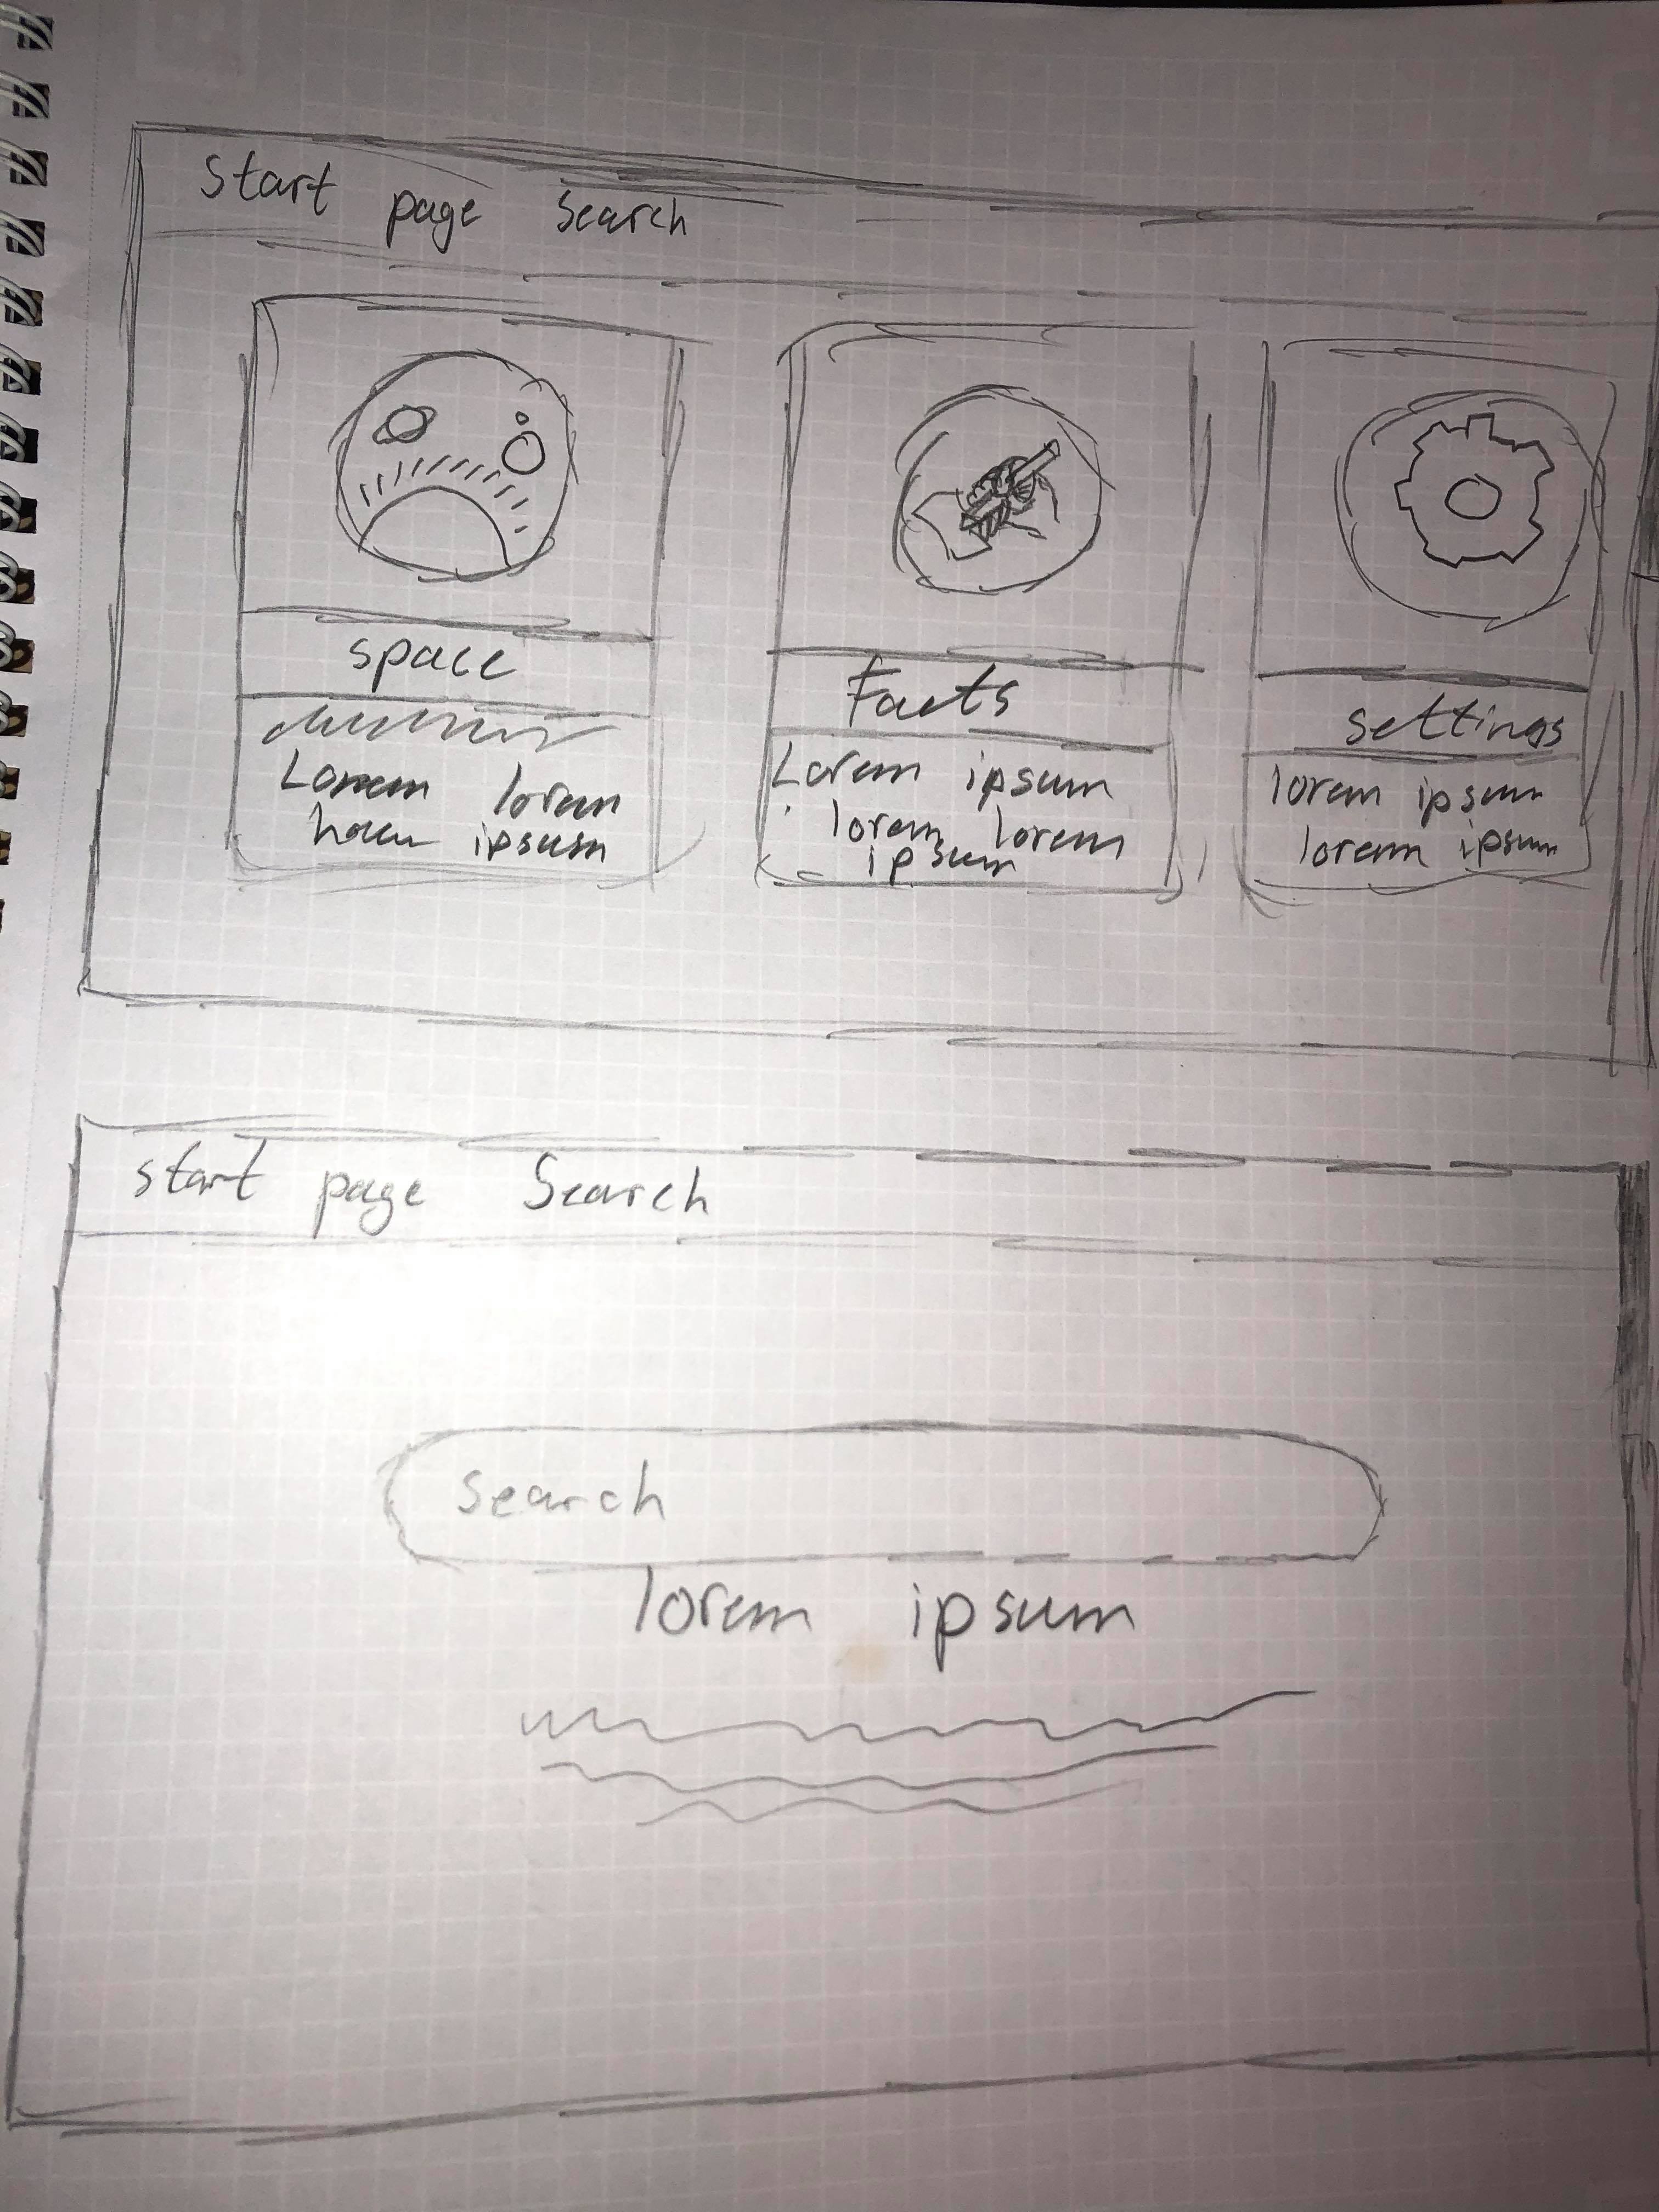 Start page Search
space
Lorem lorem
ipsum
Facts
Lorem ipsum
lorem lorem
ipsum
settings
lorem ipsum
lorem ipsum
start page Search
search
lorem ipsum